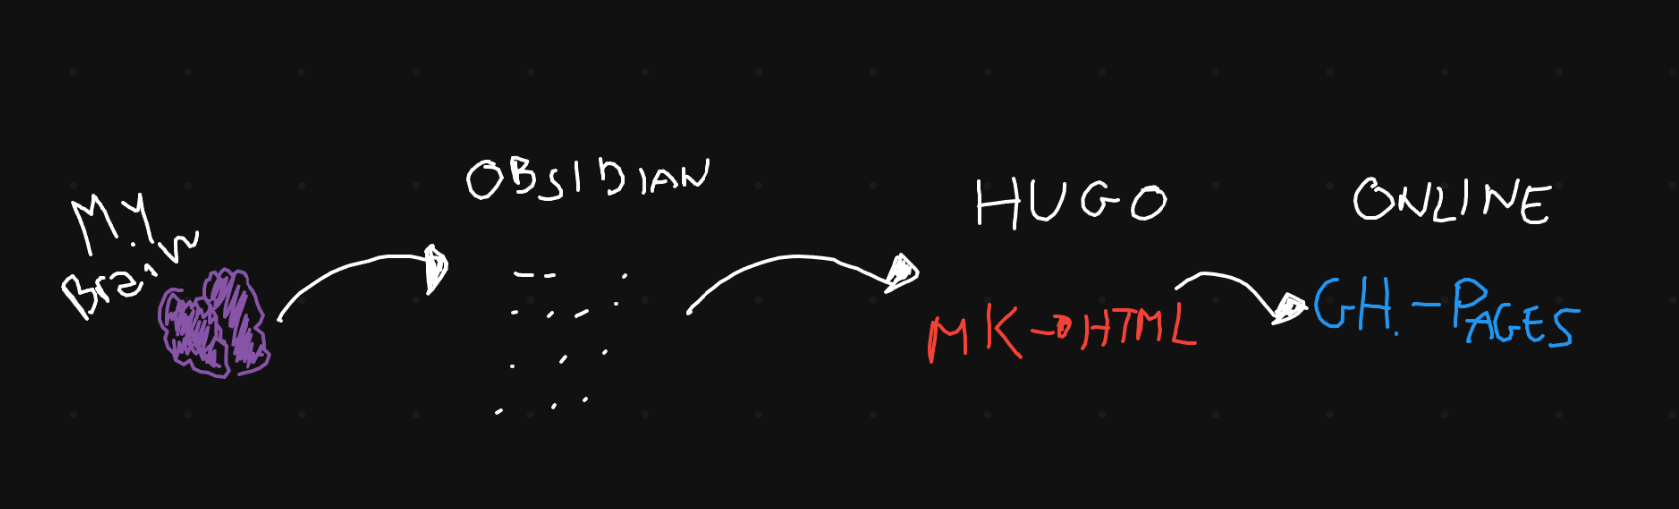 MY
Brain
OBSIDIAN
HUGO
MK→HTML
ONLINE
GH.-PAGES